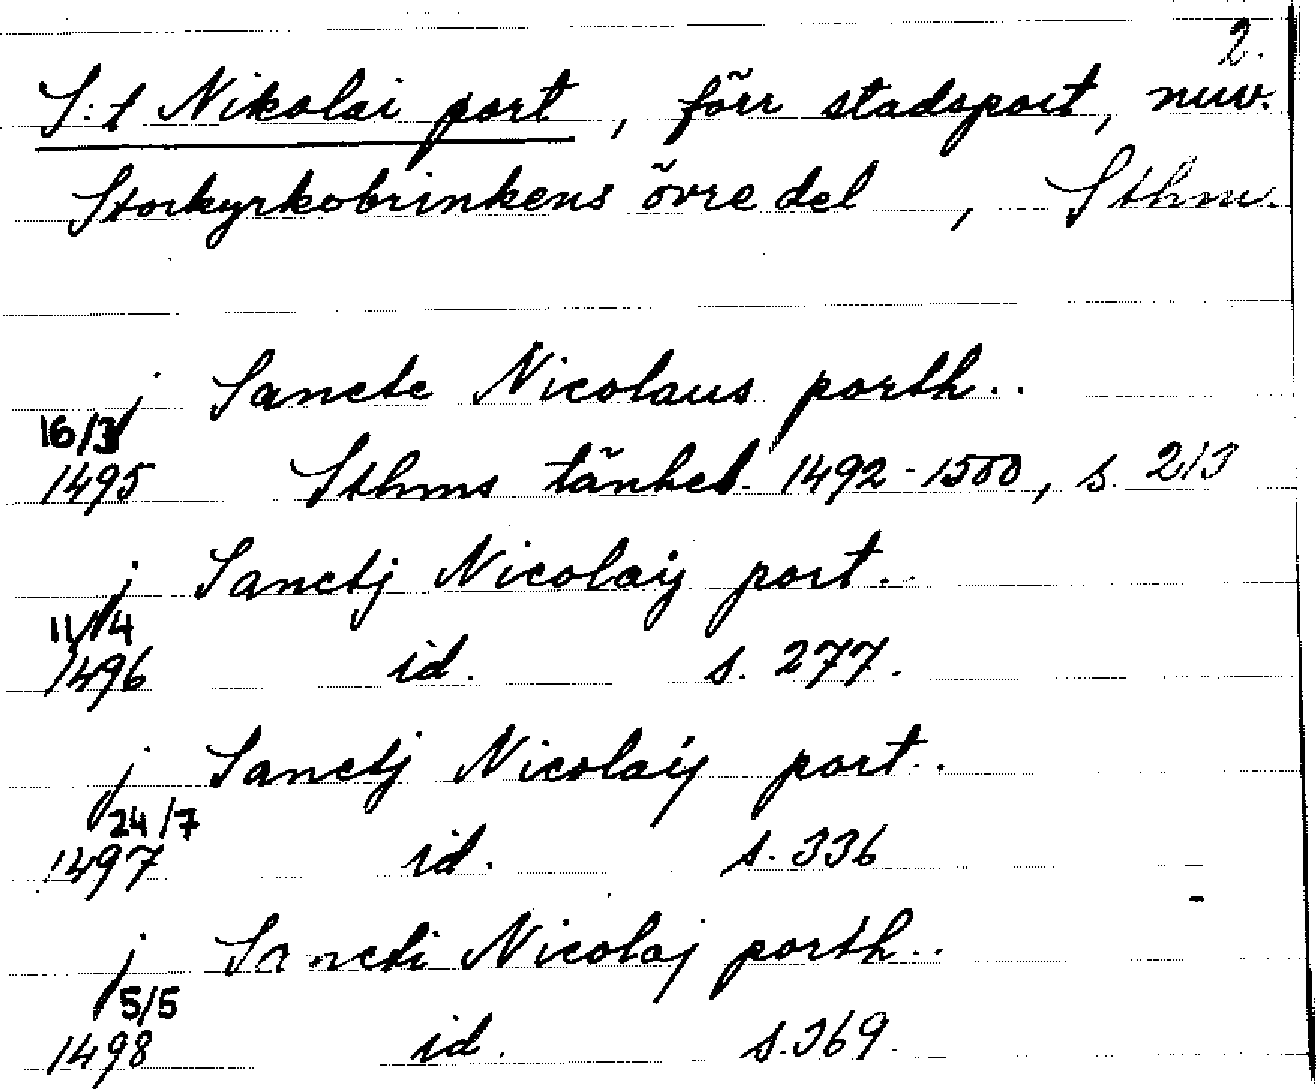 2.
S:t Nikolai port, förr stadsport, nuv.
Storkyrkobrinkens övre del, Sthm.
j Sancte Nicolaus porth..
16/3
1495 Sthms tänkeb. 1492-1500, s. 213
j Sanctj Nicolaij port..
11/4
1496 id. s. 277.
j Sanctj Nicolaij port..
24/7
1497 id. s. 336
j Sancti Nicolaj porth..
5/5
1498 id. s. 369.